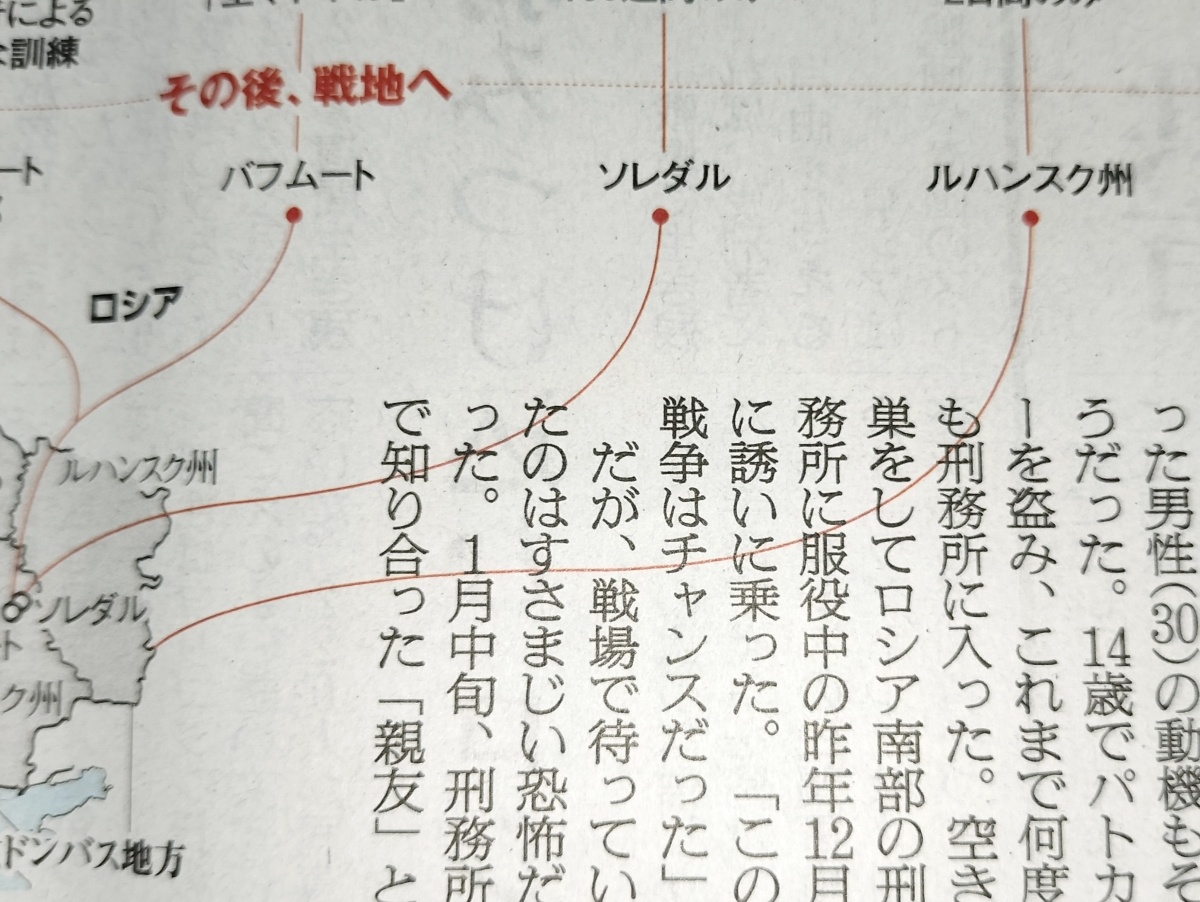 による
訓練
その後、戦地へ
バフムート
ソレダル
ルハンスク州
ロシア
ルハンスク州
ソレダル
ク州
ドンバス地方
った男性(30)の動機もそ
うだった。14歳でパトカ
ーを盗み、これまで何度
も刑務所に入った。空き
巣をしてロシア南部の刑
務所に服役中の昨年12月
に誘いに乗った。「この
戦争はチャンスだった」
だが、戦場で待ってい
たのはすさまじい恐怖だ
った。1月中旬、刑務所
で知り合った「親友」と